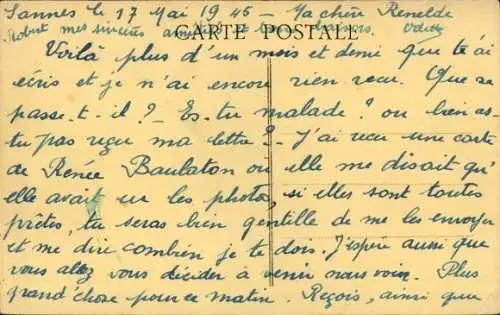 Sannes le 17 Mai 1945 - Ma chère Renelde
Robert mes sincères amitiés et bons baisers. Odette
CARTE POSTALE
Voilà plus d'un mois et demi que je t'ai
écris et je n'ai encore rien reçu. Que se
passe-t-il? - Es-tu malade? ou bien as-
tu pas reçu ma lettre? - J'ai reçu une carte
de Renée Baulaton ou elle me disait qu'
elle avait eu les photos, si elles sont toutes
prêtes, tu seras bien gentille de me les envoyer
et me dire combien je te dois. J'espère aussi que
vous allez vous décider à venir nous voir. Plus
grand'chose pour ce matin. Reçois, ainsi que